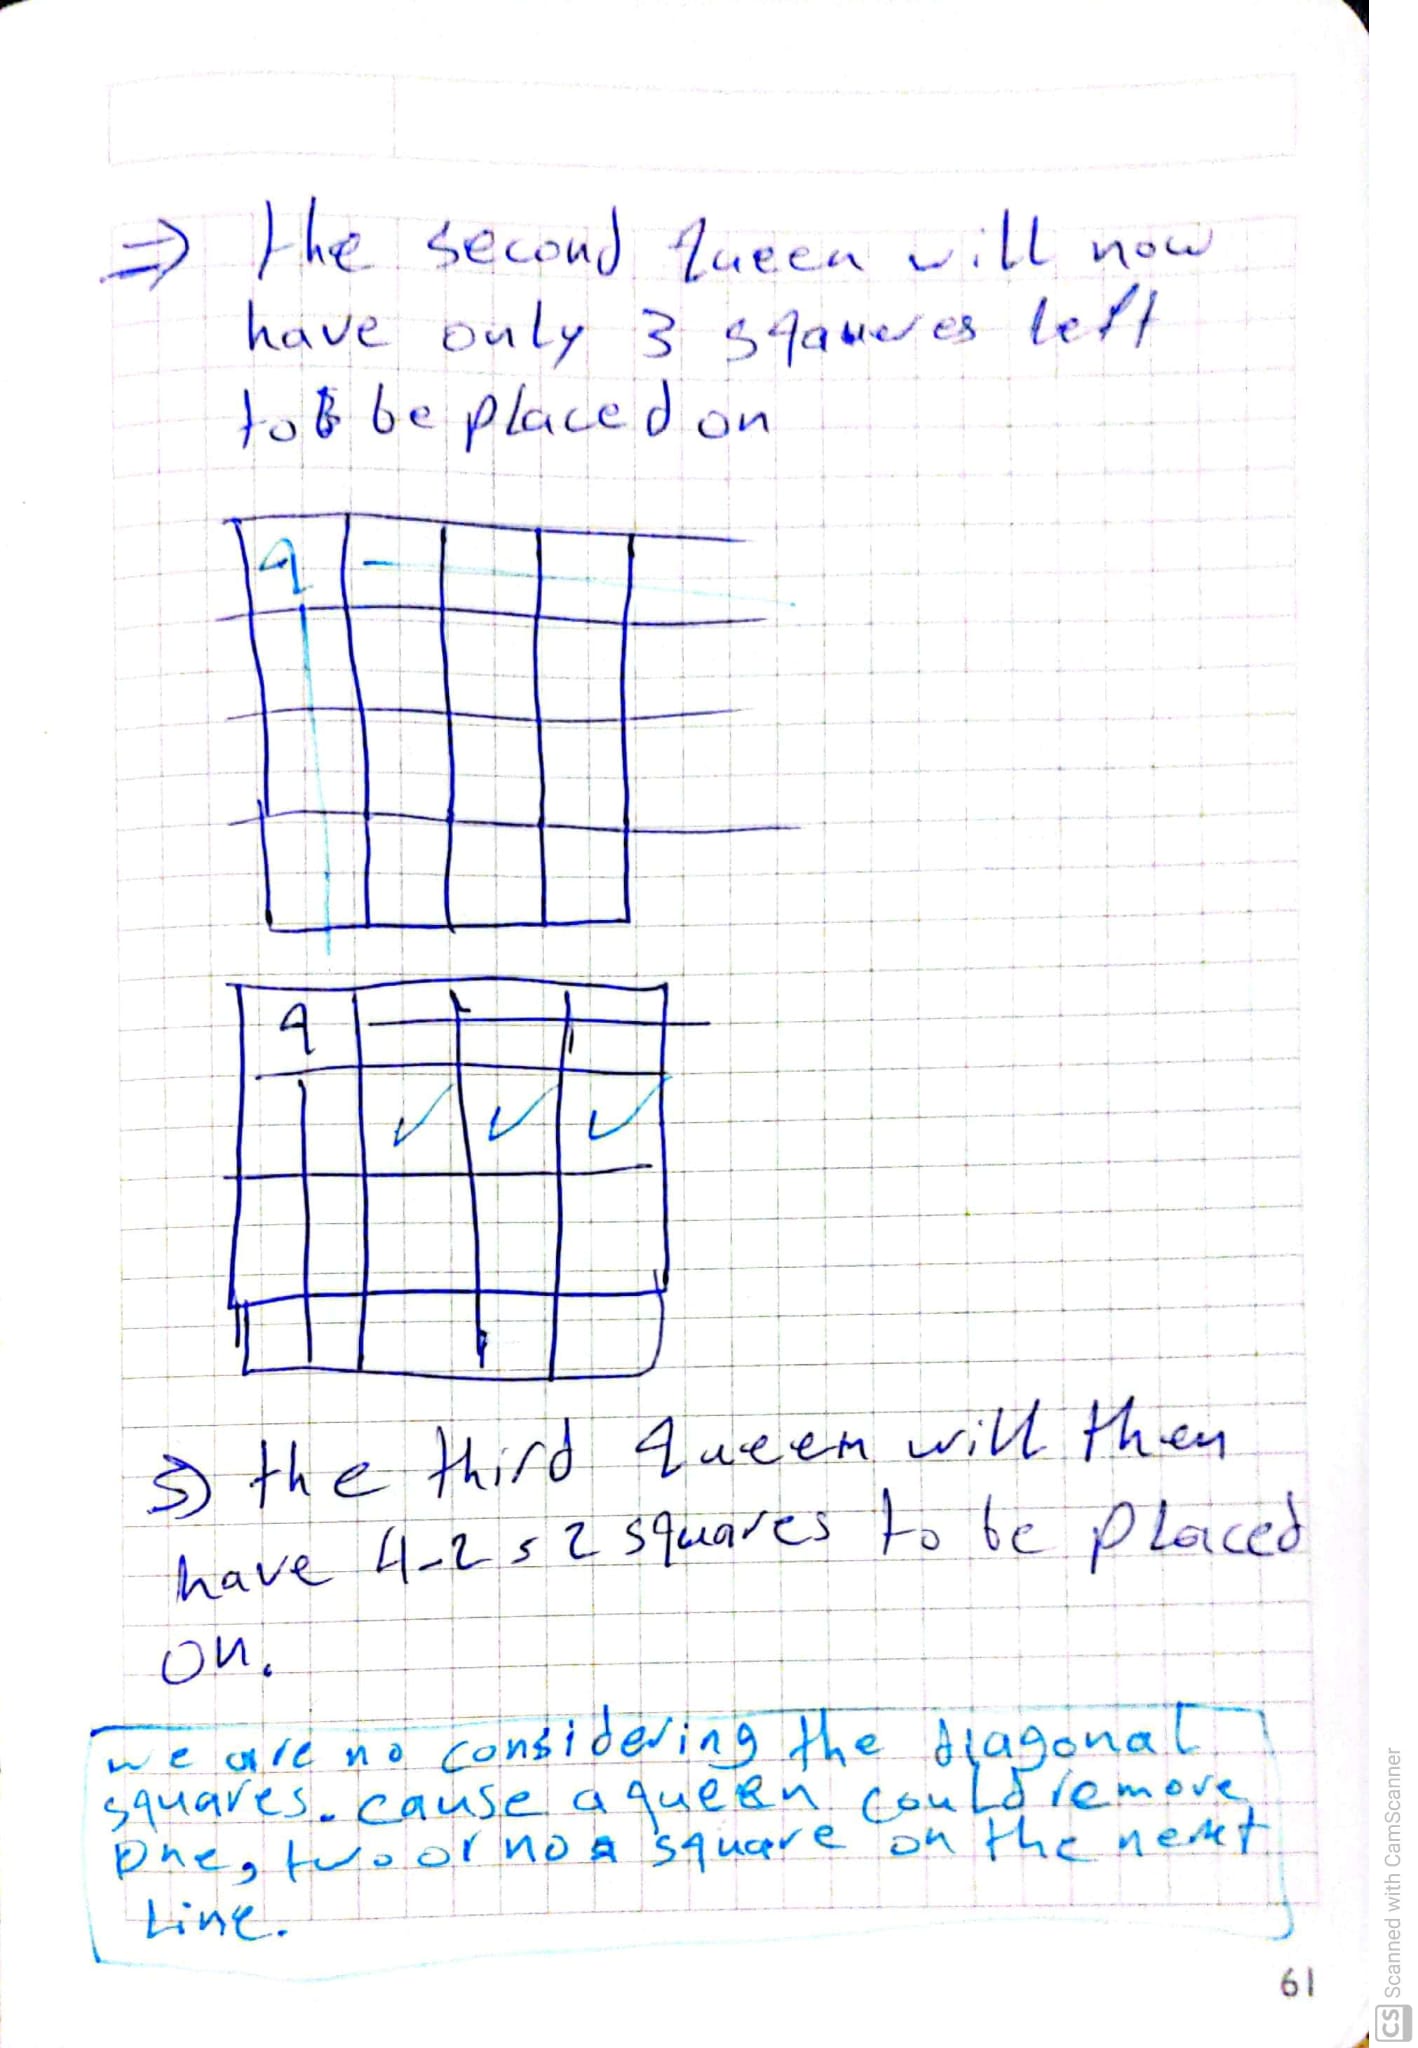 ⇒ the second queen will now
have only 3 squares left
to be placed on
q
q
✓ ✓ ✓
⇒ the third queen will then
have 4-2 = 2 squares to be placed
on.
we are no considering the diagonal
squares. cause a queen could remove
one, two or no a square on the next
Line.
61
CS Scanned with CamScanner